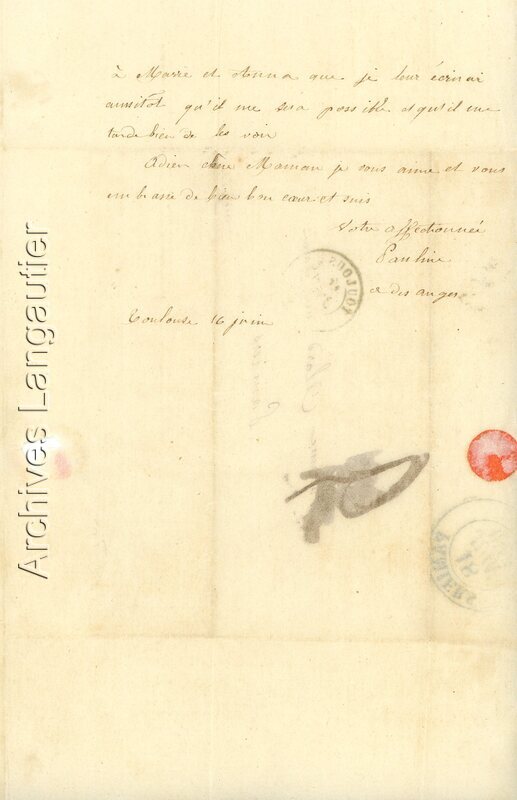 à Marie et Anna que je leur écrirai
aussitôt qu'il me sera possible et qu'il me
tarde bien de les voir
Adieu chère Maman je vous aime et vous
embrasse de bien bon cœur et suis
Votre affectionnée
Pauline
des anges
Toulouse 16 juin
TOULOUSE
PAMIERS
Archives Langautier